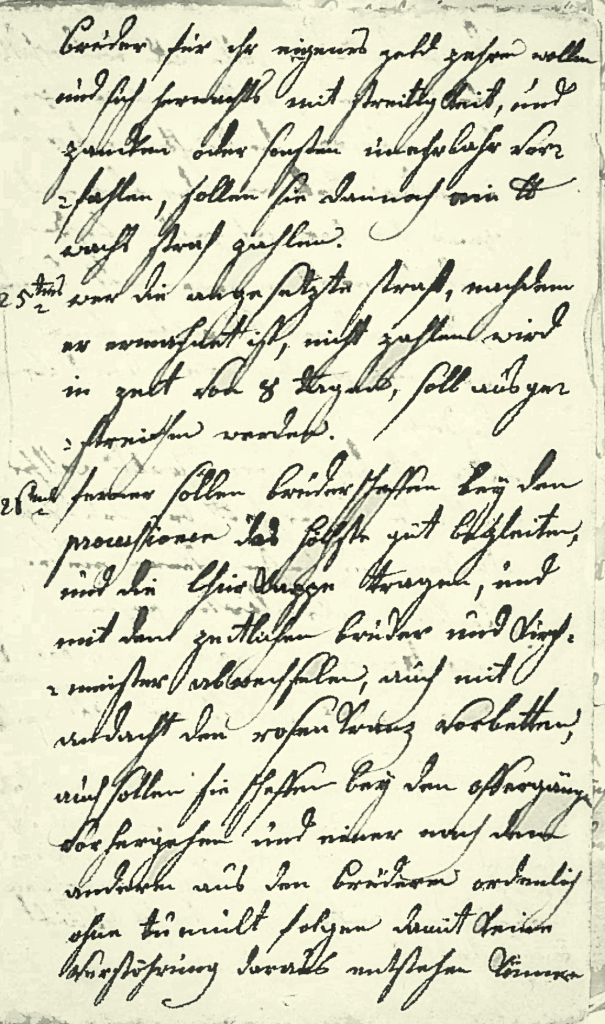 brüder für ihr eigenes geld zehren wollen
und sich hernachts mit streitigkeit, und
zancken oder sonsten unehrbahr ver=
=fahlen, sollen sie dannoch ein ℔
wachs straf zahlen.
25tens wer die angesetzte straff, nachdem
er ermahnet ist, nicht zahlen wird
in zeit von 8 tagen, soll ausge=
=strichen werden.
26tens ferner sollen brüder scheffen bey den
processionen das höchste gut begleiten,
und die Chor Kappe tragen, und
mit dem zeitlichen brüder und Kirch=
=meister abwechselen, auch mit
andacht den rosenkranz vorbetten,
auch sollen sie scheffen bey den offergänge
vorhergehen und einer nach dem
anderen aus den brüderen ordenlich
ohne tumult folgen damit keine
verstöhrung daraus entstehen könne